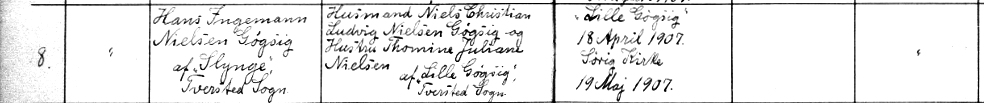 8.
"
Hans Ingemann
Nielsen Gøgsig
af "Slynge",
Tversted Sogn
Husmand Niels Christian
Ludvig Nielsen Gøgsig og
Hustru Thomine Juliane
Nielsen
af "Lille Gøgsig",
Tversted Sogn
"Lille Gøgsig"
18 April 1907.
Sørig Kirke
19 Maj 1907.
"